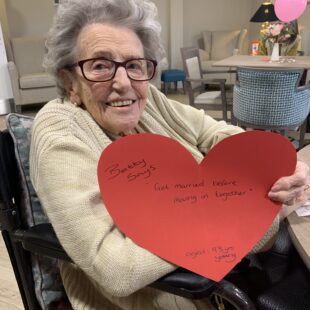 Betty
Says
"Get married before
moving in together"
aged 93 yrs
young